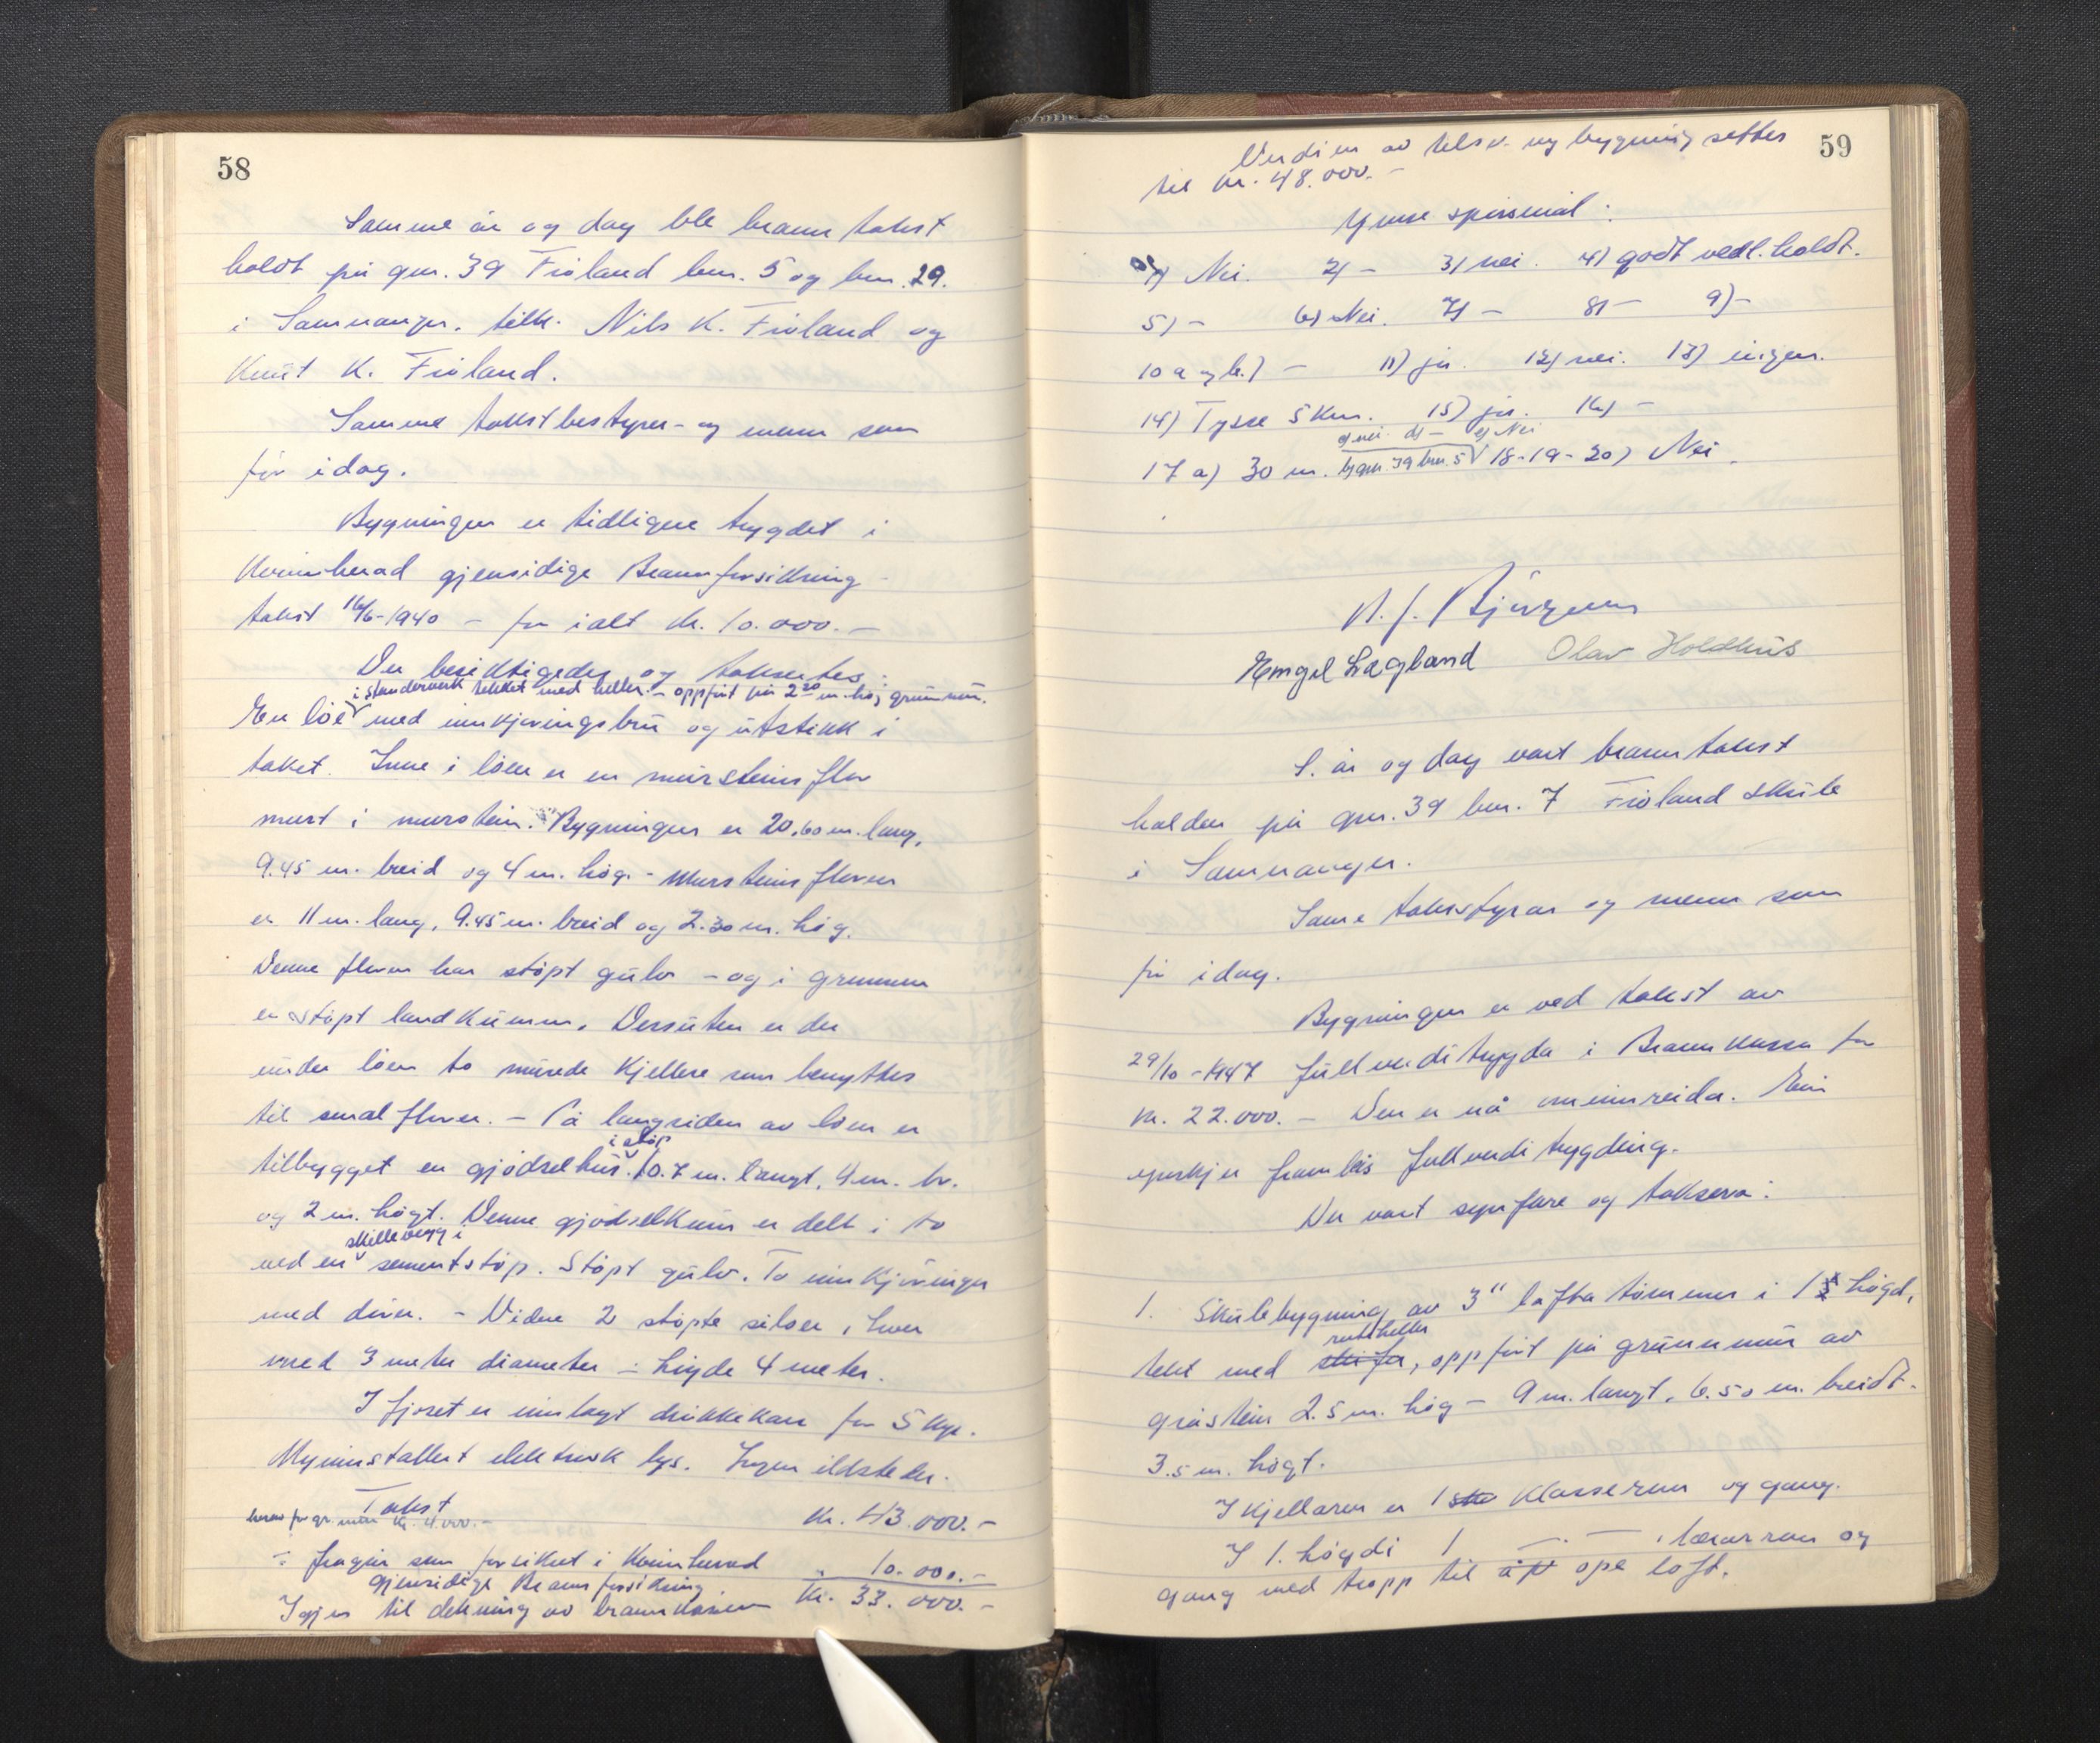 58
Samme år og dag ble branntakst
holdt på gnr. 39 Frøland bnr. 5 og bnr. 29.
i Samnanger. tilh. Nils K. Frøland og
Knut K. Frøland.
Samme takstbestyrer- og menn som
før idag.
Bygningen er tidligere trygdet i
Kvinnherad gjensidige Brannforsikring
takst 16/6-1940 - for ialt kr. 10.000.-
Der besiktigedes og taksertes:
i standerverk tekket med heller. - oppført på 2.20 m. høg grunnmur.
En løe med innkjøringsbru og utstikk i
taket. Inne i løen er en mursteinsflor
murt i murstein. Bygningen er 20.60 m. lang,
9.45 m. breid og 4 m. høg. - Mursteinsfloren
er 11 m. lang, 9.45 m. breid og 2.30 m. høg.
Denne floren har støpt gulv - og i grunnen
er støpt landkumm. Dessuten er der
under løen to murede kjellere som benyttes
til smalflorer. - På langsiden av løen er
i støp
tilbygget en gjødselhus. 10.7 m. langt, 4 m. br.
og 2 m. høgt. Denne gjødselkum er delt i to
skillevegg i
ved en sementstøp. Støpt gulv. To innkjøringer
med dører. - Videre 2 støpte siloer, hver
med 3 meter diameter - høgde 4 meter.
I fjøset er innlagt drikkekar for 5 kyr.
Nyinnstallert elektrisk lys. Ingen ildsteder.
Takst Kr. 43.000.-
herav for gr.mur kr. 4.000.-
÷ fragår som forsikret i Kvinnherad " 10.000.-
gjensidige Brannforsikring.
Igjen til dekning av brannkassen Kr. 33.000.-
59
Verdien av tilsv. ny bygning settes
til kr. 48.000.-
Ymse spørsmål:
1) Nei. 2) - 3) nei. 4) godt vedl.holdt.
5) - 6) Nei. 7) - 8) - 9) -
10 a og b.) - 11) ja. 12) nei. 13) ingen.
14) Tysse 5 km. 15) ja. 16) -
c) nei. d) - e) Nei
17 a) 30 m. b) gnr. 39 bnr. 5 18-19-20) Nei.
Engel Lægland Olav Holdhus
S. år og dag vart branntakst
halden på gnr. 39 bnr. 7 Frøland skule
i Samnanger.
Same takststyrar og menn som
før idag.
Bygningen er ved takst av
29/10-1947 fullverditrygda i Brannkassa for
kr. 22.000.- Den er nå ominnreida. Ein
ynskjer framleis fullverditrygding.
Der vart synfare og taksera:
1. Skulebygning av 3" lafta tømmer i 1 høgd,
rutheller
tekt med skifer, oppført på grunnmur av
gråstein 2.5 m. høg - 9 m. langt, 6.50 m. breidt.
3.5 m. høgt.
I kjellaren er 1 stk klasserom og gang.
I 1. høgdi 1 - " - , lærarrom og
gang med tropp til ope loft.